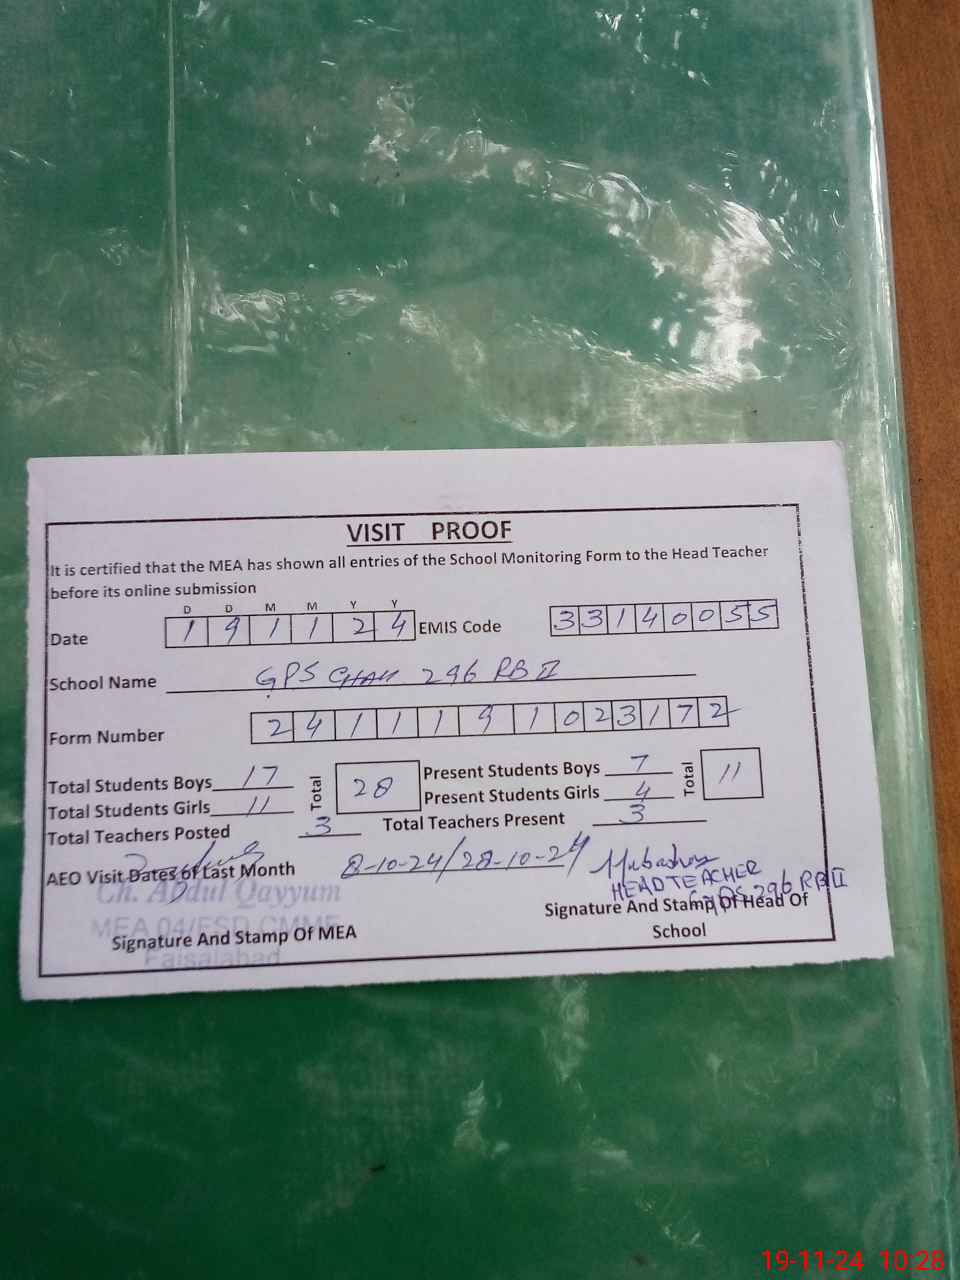 VISIT PROOF
It is certified that the MEA has shown all entries of the School Monitoring Form to the Head Teacher
before its online submission
D D M M Y Y
Date 1 9 1 1 2 4 EMIS Code 3 3 1 4 0 0 5 5
School Name GPS CHAK 296 RB II
Form Number 2 4 1 1 1 9 1 0 2 3 1 7 2
Total Students Boys 17 Total 28 Present Students Boys 7 Total 11
Total Students Girls 11 Present Students Girls 4
Total Teachers Posted 3 Total Teachers Present 3
AEO Visit Dates of Last Month 8-10-24/28-10-24
Mubashra
HEADTEACHER
GPS 296 RB II
Ch. Abdul Qayyum
MEA 04/FSD CMMF
Faisalabad
Signature And Stamp Of MEA
Signature And Stamp Of Head Of
School
19-11-24 10:28